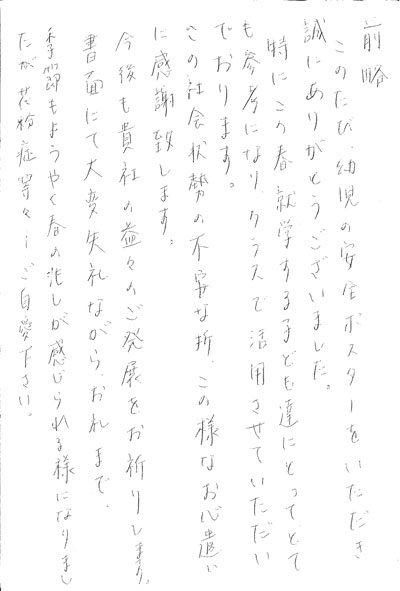 前略
このたび、幼児の安全ポスターをいただき
誠にありがとうございました。
特にこの春就学する子ども達にとってとて
も参考になり、クラスで活用させていただい
ております。
この社会状勢の不安な折、この様なお心遣い
に感謝致します。
今後も貴社の益々のご発展をお祈りします。
書面にて大変失礼ながら、お礼まで、
季節もようやく春の兆しが感じられる様になりまし
たが花粉症等々…ご自愛下さい。